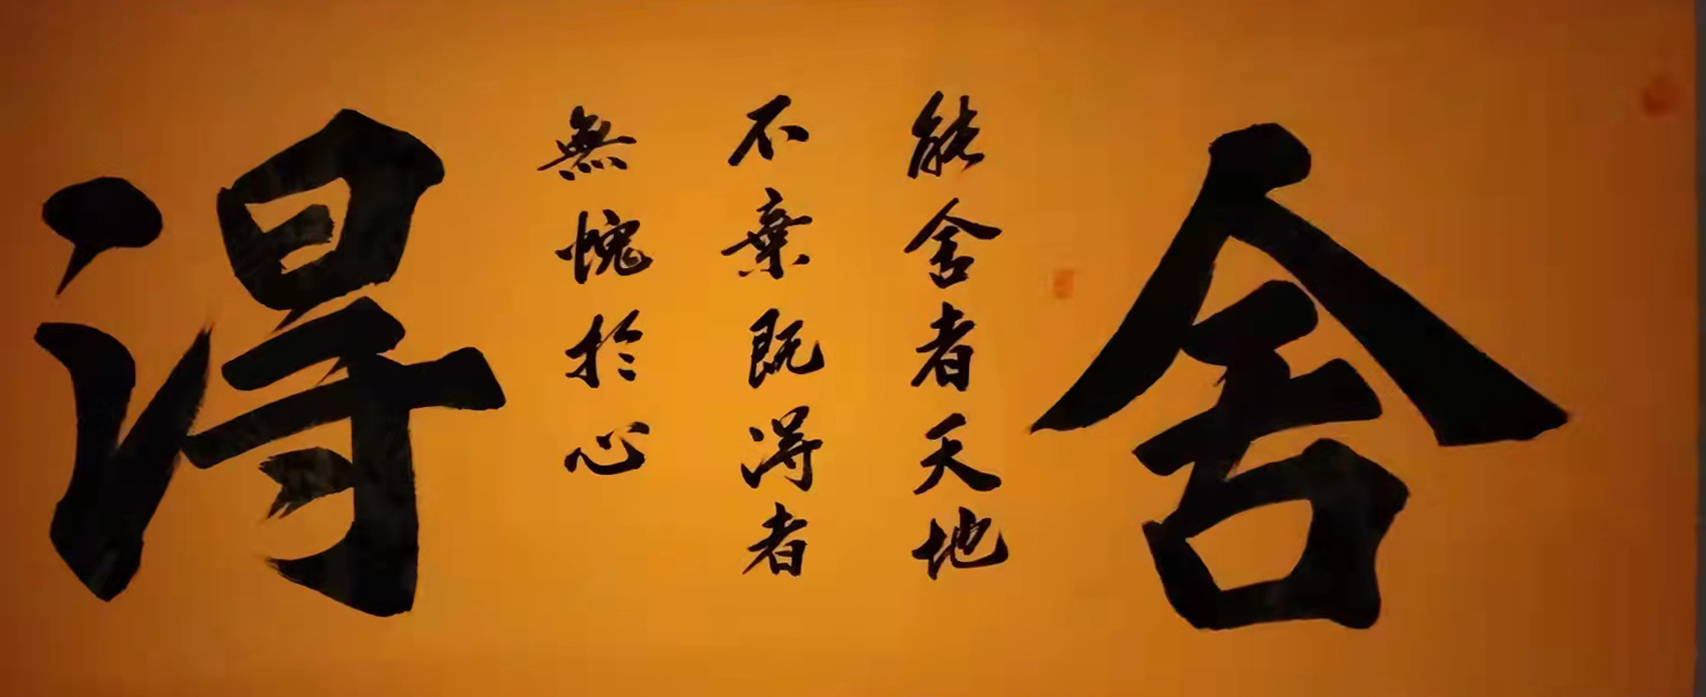 舍
能舍者天地
不棄既得者
無愧於心
得